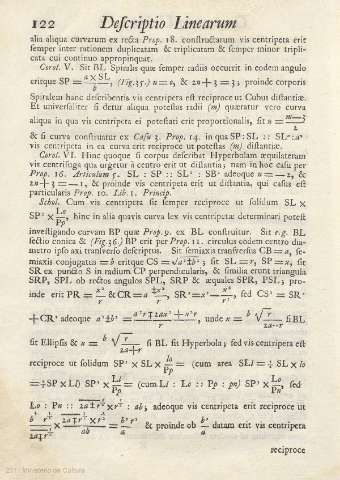 122 Descriptio Linearum
alia aliqua curvarum ex recta Prop. 18. constructarum vis centripeta erit
semper inter rationem duplicatam & triplicatam & semper minor tripli-
cata cui continuo appropinquat.
Corol. V. Sit BL Spiralis quæ semper radiis occurrit in eodem angulo
eritque SP = a × SL / b, (Fig. 35.) n = 0, & 2n + 3 = 3; proinde corporis
Spiralem hanc describentis vis centripeta est reciproce ut Cubus distantiæ.
Et universaliter si detur aliqua potestas radii (m) quæratur vero curva
aliqua in qua vis centripeta ei potestati erit proportionalis, sit n = m — 3 / 2
& si curva construatur ex Casu 3. Prop. 14. in qua SP : SL ::
vis centripeta in ea curva erit reciproce ut potestas (m) distantiæ.
Corol. VI. Hinc quoque si corpus describat Hyperbolam æquilateram
vis centrifuga qua urgetur à centro erit ut distantia; nam in hoc casu per
Prop. 16. Articulum 5. SL : SP :: SL² : SB² adeoque n = — 2, &
2n + 3 = — 1, & proinde vis centripeta erit ut distantia, qui casus est
particularis Prop. 10. Lib. 1. Princip.
Schol. Cum vis centripeta sit semper reciproce ut solidum SL ×
SP² × Lo / Pp, hinc in aliis quavis curva lex vis centripetæ determinari potest
investigando curvam BP quæ Prop. 9. ex BL construitur. Sit v. g. BL
sectio conica & (Fig. 36.) BP erit per Prop. 11. circulus eodem centro dia-
metro ipso axi tranverso descriptus. Sit semiaxis transversus CB = a, se-
miaxis conjugatus = b eritque CS = √a² ± b²; sit SL = r, SP = x, sit
SR ex puncto S in radium CP perpendicularis, & similia erunt triangula
SRP, SPL ob rectos angulos SPL, SRP & æquales SPR, PSL; pro-
inde erit PR = x² / r & CR = a
+ CR² adeoque
sit Ellipsis & si BL sit Hyperbola; sed vis centripeta est
reciproce ut solidum SP² × SL × lo / Pp = (cum area SLl = ½ SL × lo
= ½ SP × Ll) SP³ × Ll / Pp = (cum Ll : Lo :: Pp : pn) SP³ × Lo / Pn, sed
Lo : Pn :: : ab; adeoque vis centripeta erit reciproce ut
& proinde ob b² / a datam erit vis centripeta
reciproce
Ministerio de Cultura